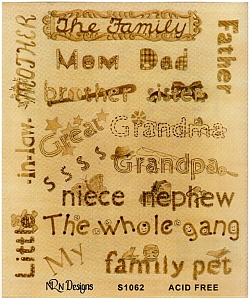 The Family
MOTHER
Father
Mom Dad
brother sister
Great Grandma
-in-law-
S S S S Grandpa
niece nephew
Little
The whole gang
My family pet
NRN Designs S1062 ACID FREE